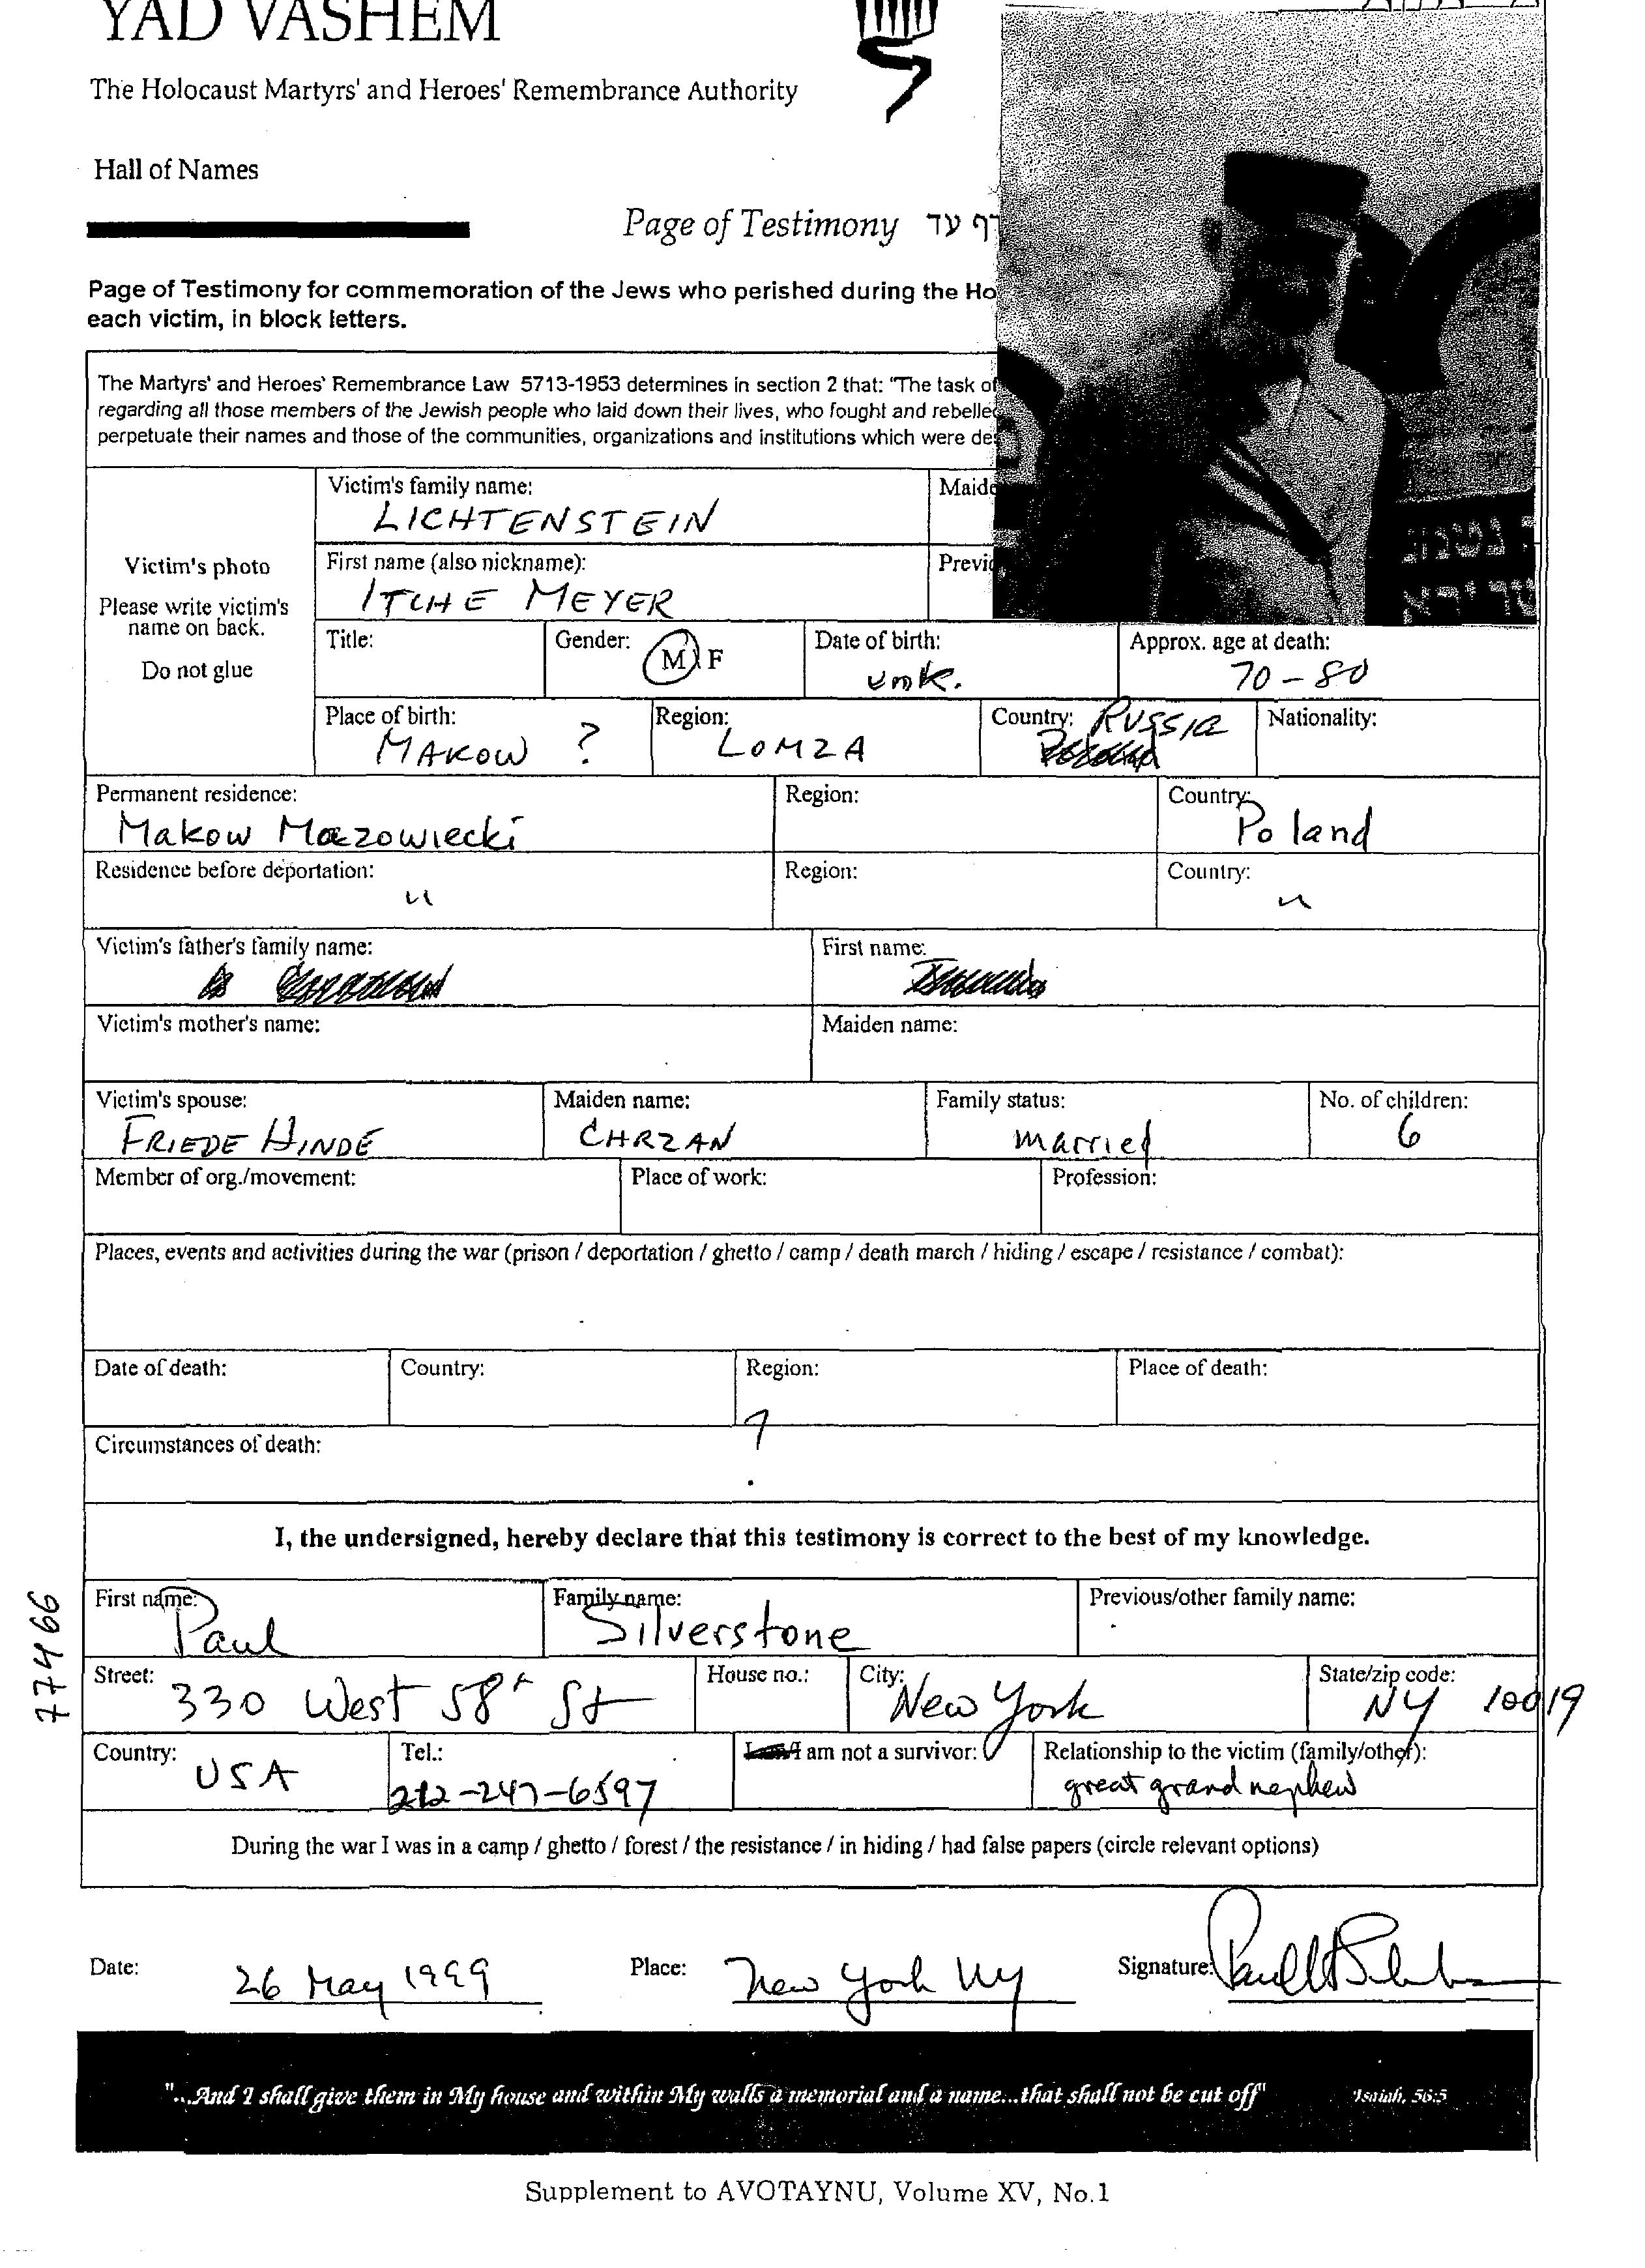 YAD VASHEM
The Holocaust Martyrs' and Heroes' Remembrance Authority
Hall of Names
Page of Testimony דף עד
Page of Testimony for commemoration of the Jews who perished during the Ho
each victim, in block letters.
The Martyrs' and Heroes' Remembrance Law 5713-1953 determines in section 2 that: "The task of
regarding all those members of the Jewish people who laid down their lives, who fought and rebelled
perpetuate their names and those of the communities, organizations and institutions which were de
Victim's photo
Please write victim's
name on back.
Do not glue
Victim's family name:
LICHTENSTEIN
Maide
First name (also nickname):
ITCHE MEYER
Previo
Title:
Gender: M F
Date of birth:
unk.
Approx. age at death:
70-80
Place of birth:
MAKOW ?
Region:
LOMZA
Country: RUSSIA
Nationality:
Permanent residence:
Makow Mazowiecki
Region:
Country:
Poland
Residence before deportation:
"
Region:
Country:
"
Victim's father's family name:
First name:
Victim's mother's name:
Maiden name:
Victim's spouse:
FRIEDE HINDE
Maiden name:
CHRZAN
Family status:
married
No. of children:
6
Member of org./movement:
Place of work:
Profession:
Places, events and activities during the war (prison / deportation / ghetto / camp / death march / hiding / escape / resistance / combat):
Date of death:
Country:
Region:
Place of death:
?
Circumstances of death:
I, the undersigned, hereby declare that this testimony is correct to the best of my knowledge.
First name:
Paul
Family name:
Silverstone
Previous/other family name:
Street:
330 West 58th St
House no.:
City:
New York
State/zip code:
NY 10019
Country:
USA
Tel.:
212-247-6597
am not a survivor:
Relationship to the victim (family/other):
great grand nephew
During the war I was in a camp / ghetto / forest / the resistance / in hiding / had false papers (circle relevant options)
77466
Date: 26 May 1999
Place: New York NY
Signature:
"...And I shall give them in My house and within My walls a memorial and a name...that shall not be cut off" Isaiah, 56:5
Supplement to AVOTAYNU, Volume XV, No.1